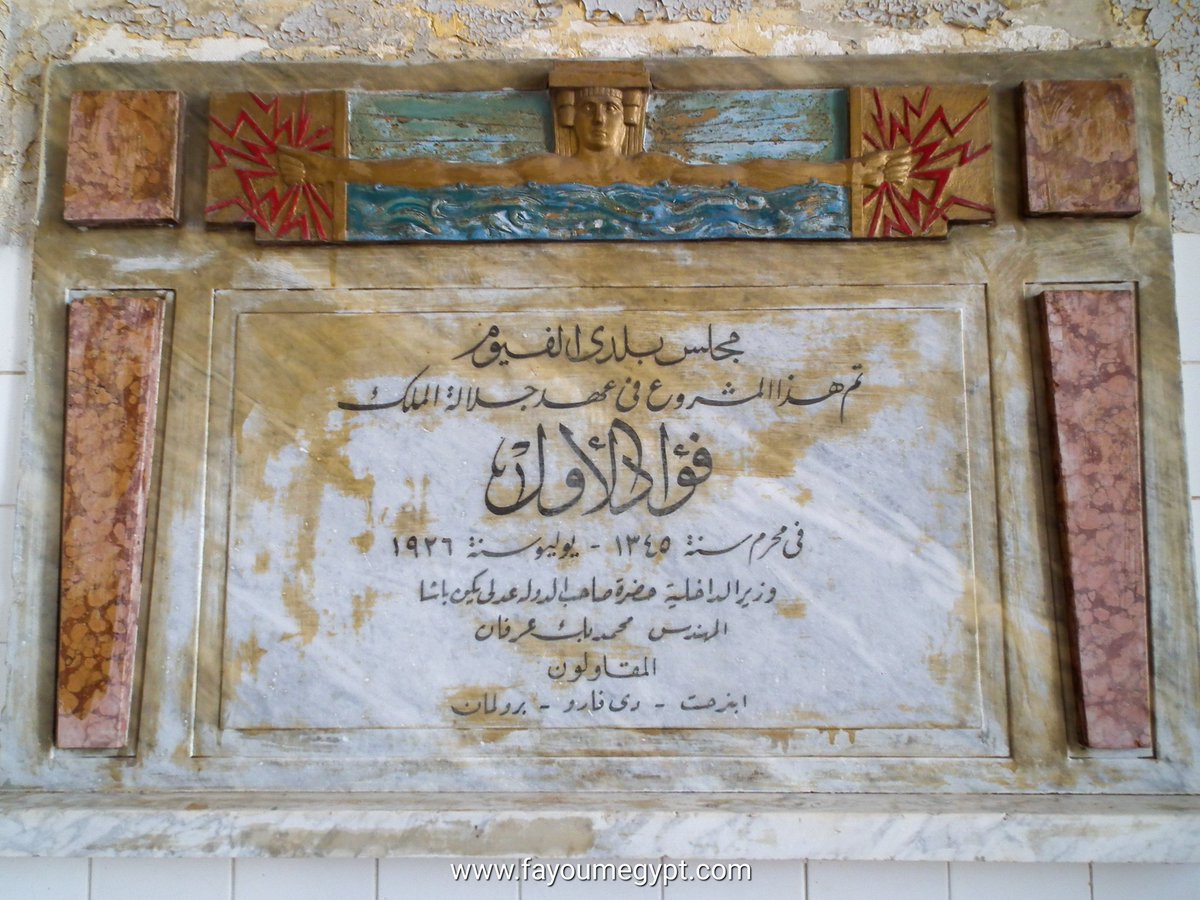 مجلس بلدى الفيوم
تم هذا المشروع فى عهد جلالة الملك
فؤاد الأول
فى محرم سنة ١٣٤٥ - يوليو سنة ١٩٢٦
وزير الداخلية حضرة صاحب الدولة عدلى يكن باشا
المهندس محمد بك عرفان
المقاولون
دى فارو - برولمان
www.fayoumegypt.com